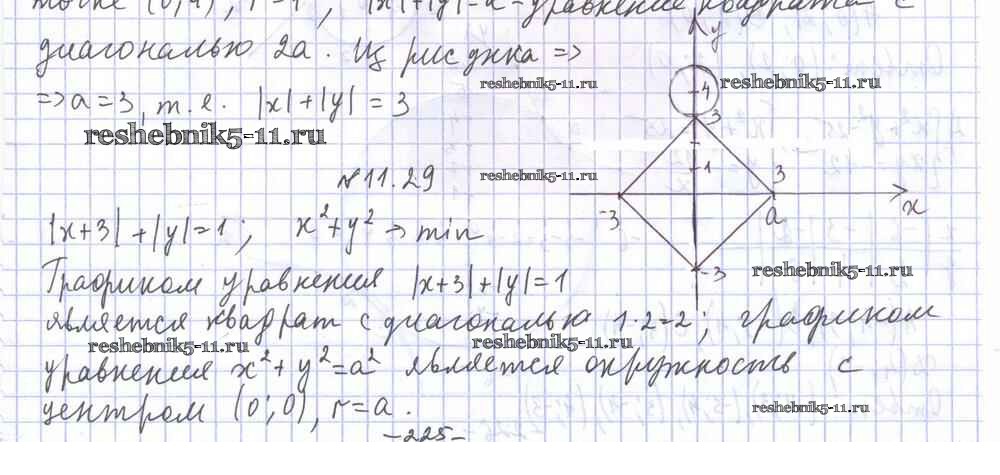 точке (0;4), r=1; |x|+|y|=a - уравнение квадрата с
диагональю 2a. Из рисунка =>
=> a=3, т.е. |x|+|y|=3
reshebnik5-11.ru
y
reshebnik5-11.ru
4
reshebnik5-11.ru
3
№11.29
reshebnik5-11.ru
1
3
-3
a
x
-3
reshebnik5-11.ru
|x+3|+|y|=1; x²+y² → min
Графиком уравнения |x+3|+|y|=1
является квадрат с диагональю 1·2=2; графиком
reshebnik5-11.ru
reshebnik5-11.ru
уравнения x²+y²=a² является окружность с
центром (0;0), r=a.
reshebnik5-11.ru
-225-